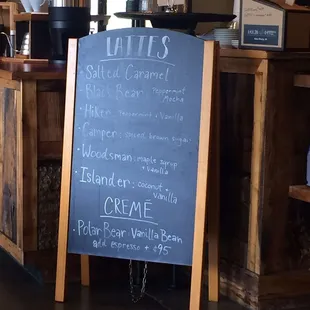 LATTES
· Salted Caramel
· Black Bear: Peppermint Mocha
· Hiker: Peppermint + Vanilla
· Camper: brown sugar
· Woodsman: maple syrup + vanilla
· Islander: coconut + vanilla
CREME
· Polar Bear: Vanilla Bean
add espresso - $.95